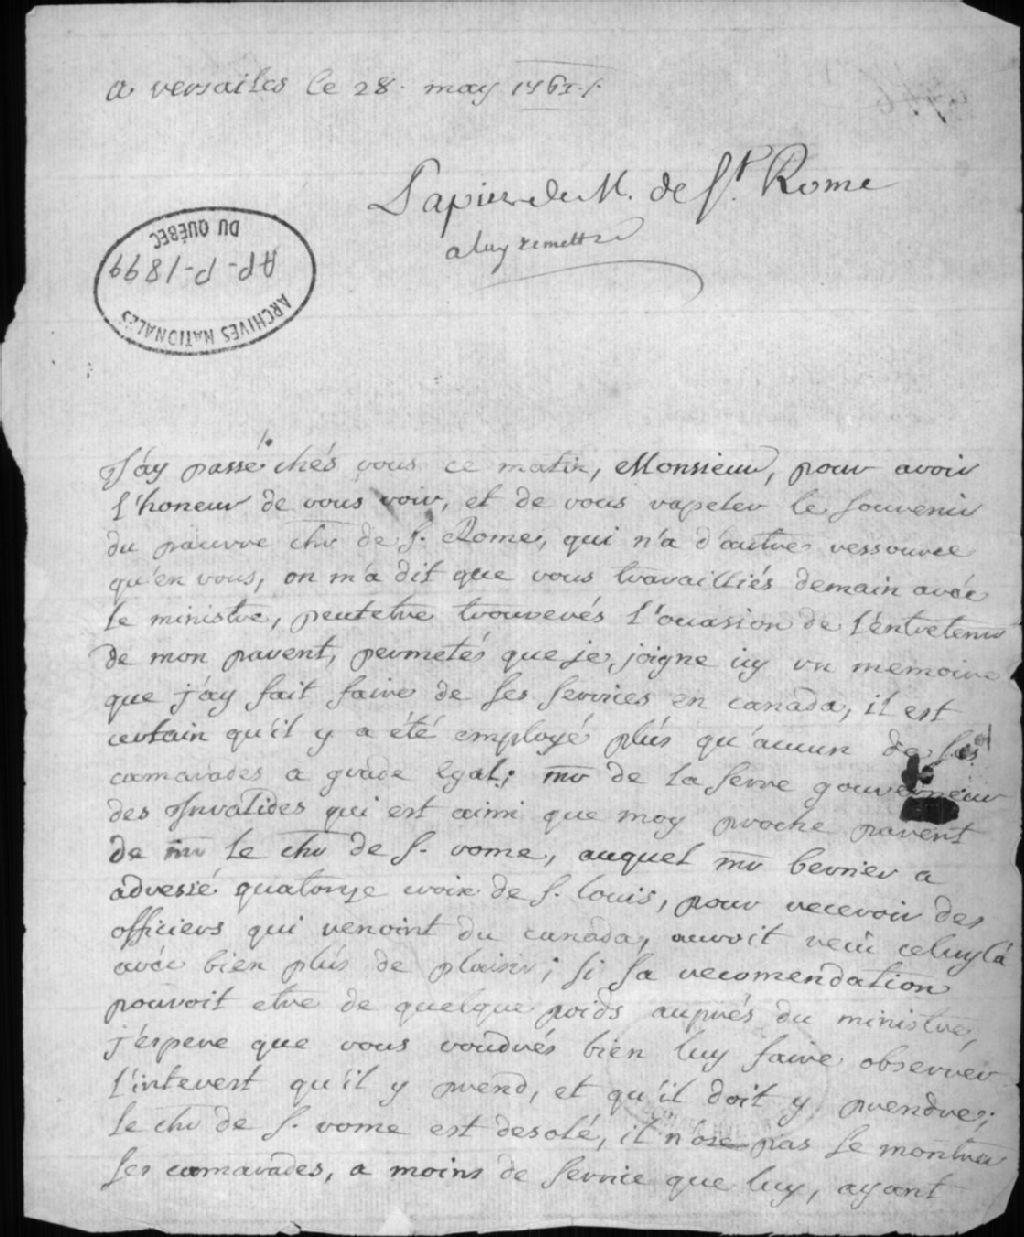 a versailes le 28. may 1761./.
Papier de M. de St. Rome
a luy remettre
ARCHIVES NATIONALES
AP-P-1899
DU QUÉBEC
J'ay passé chés vous ce matin, Monsieur, pour avoir
l'honeur de vous voir, et de vous rapeler le souvenir
du pauvre chr de S. Rome, qui n'a d'autre ressource
qu'en vous, on m'a dit que vous travailliés demain avéc
le ministre, peutetre trouverés l'ocasion de l'éntretenir
de mon parent, permetés que je joigne icy un memoire
que j'ay fait faire de ses services en canada, il est
certain qu'il y a été employé plús qu'aucun de ses
camarades a grade egal; mr de la serre gouverneur
des Invalides qui est ainsi que moy proche parent
de mr le chr de S. rome, auquel mr berrier a
adressé quatorze croix de S. louis, pour recevoir des
officiers qui venoint du canada, auroit reçû celuy là
avéc bien plús de plaisir; si sa recomendation
pouvoit etre de quelque poids auprés du ministre,
j'éspere que vous voudrés bien luy faire observér
l'interest qu'il y prend, et qu'il doit y prendre;
le chr de S. rome est desolé, il n'ose pas se montrer
ses camarades, a moins de service que luy, ayant